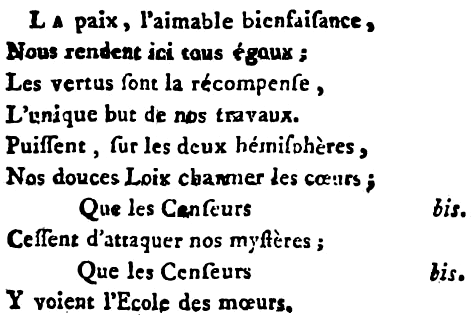 LA paix, l'aimable bienfaiſance,
Nous rendent ici tous égaux ;
Les vertus ſont la récompenſe,
L'unique but de nos travaux.
Puiſſent, ſur les deux hémiſphères,
Nos douces Loix charmer les cœurs ;
Que les Cenſeurs bis.
Ceſſent d'attaquer nos myſtères ;
Que les Cenſeurs bis.
Y voient l'Ecole des mœurs.